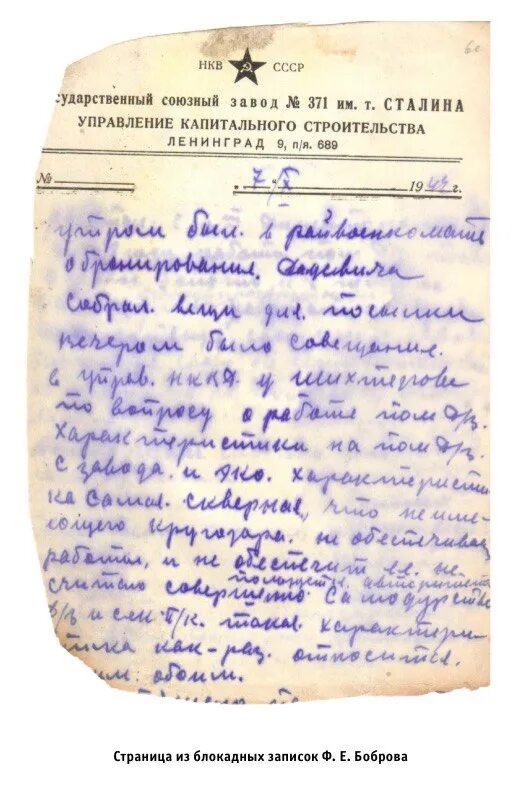 60
НКВ СССР
сударственный союзный завод № 371 им. т. СТАЛИНА
УПРАВЛЕНИЕ КАПИТАЛЬНОГО СТРОИТЕЛЬСТВА
ЛЕНИНГРАД 9, п/я. 689
№ 7/X 1942 г.
утром был. в райвоенкомате
о бронирования.
собрал. вещи для. посылки
вечером было совещания.
в управ. НКВД. у Шихтерова
по вопросу о работе пом Дз.
характеристики на пом Дз.
с завода. и эко. характерист
ика самая. скверная, что неиме
ющего кругозара. не обеспечивае
работы, и не обеспечит ее. не
считаю совершенно.
Д/з и сек П/к. такая. характери
тика как-раз. относится.
им. обоим.
Страница из блокадных записок Ф. Е. Боброва